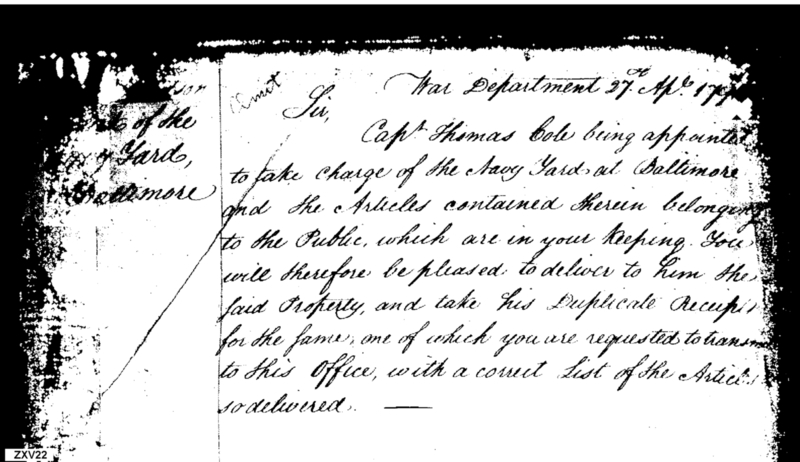 of the
Yard,
Baltimore
Omit
War Department 27th Apl. 179
Sir,
Capt. Thomas Cole being appointed
to take charge of the Navy Yard at Baltimore
and the Articles contained therein belonging
to the Public, which are in your keeping. You
will therefore be pleased to deliver to him the
said Property, and take his Duplicate Receipts
for the same, one of which you are requested to transm
to this Office, with a correct List of the Articles
so delivered. —
ZXV22